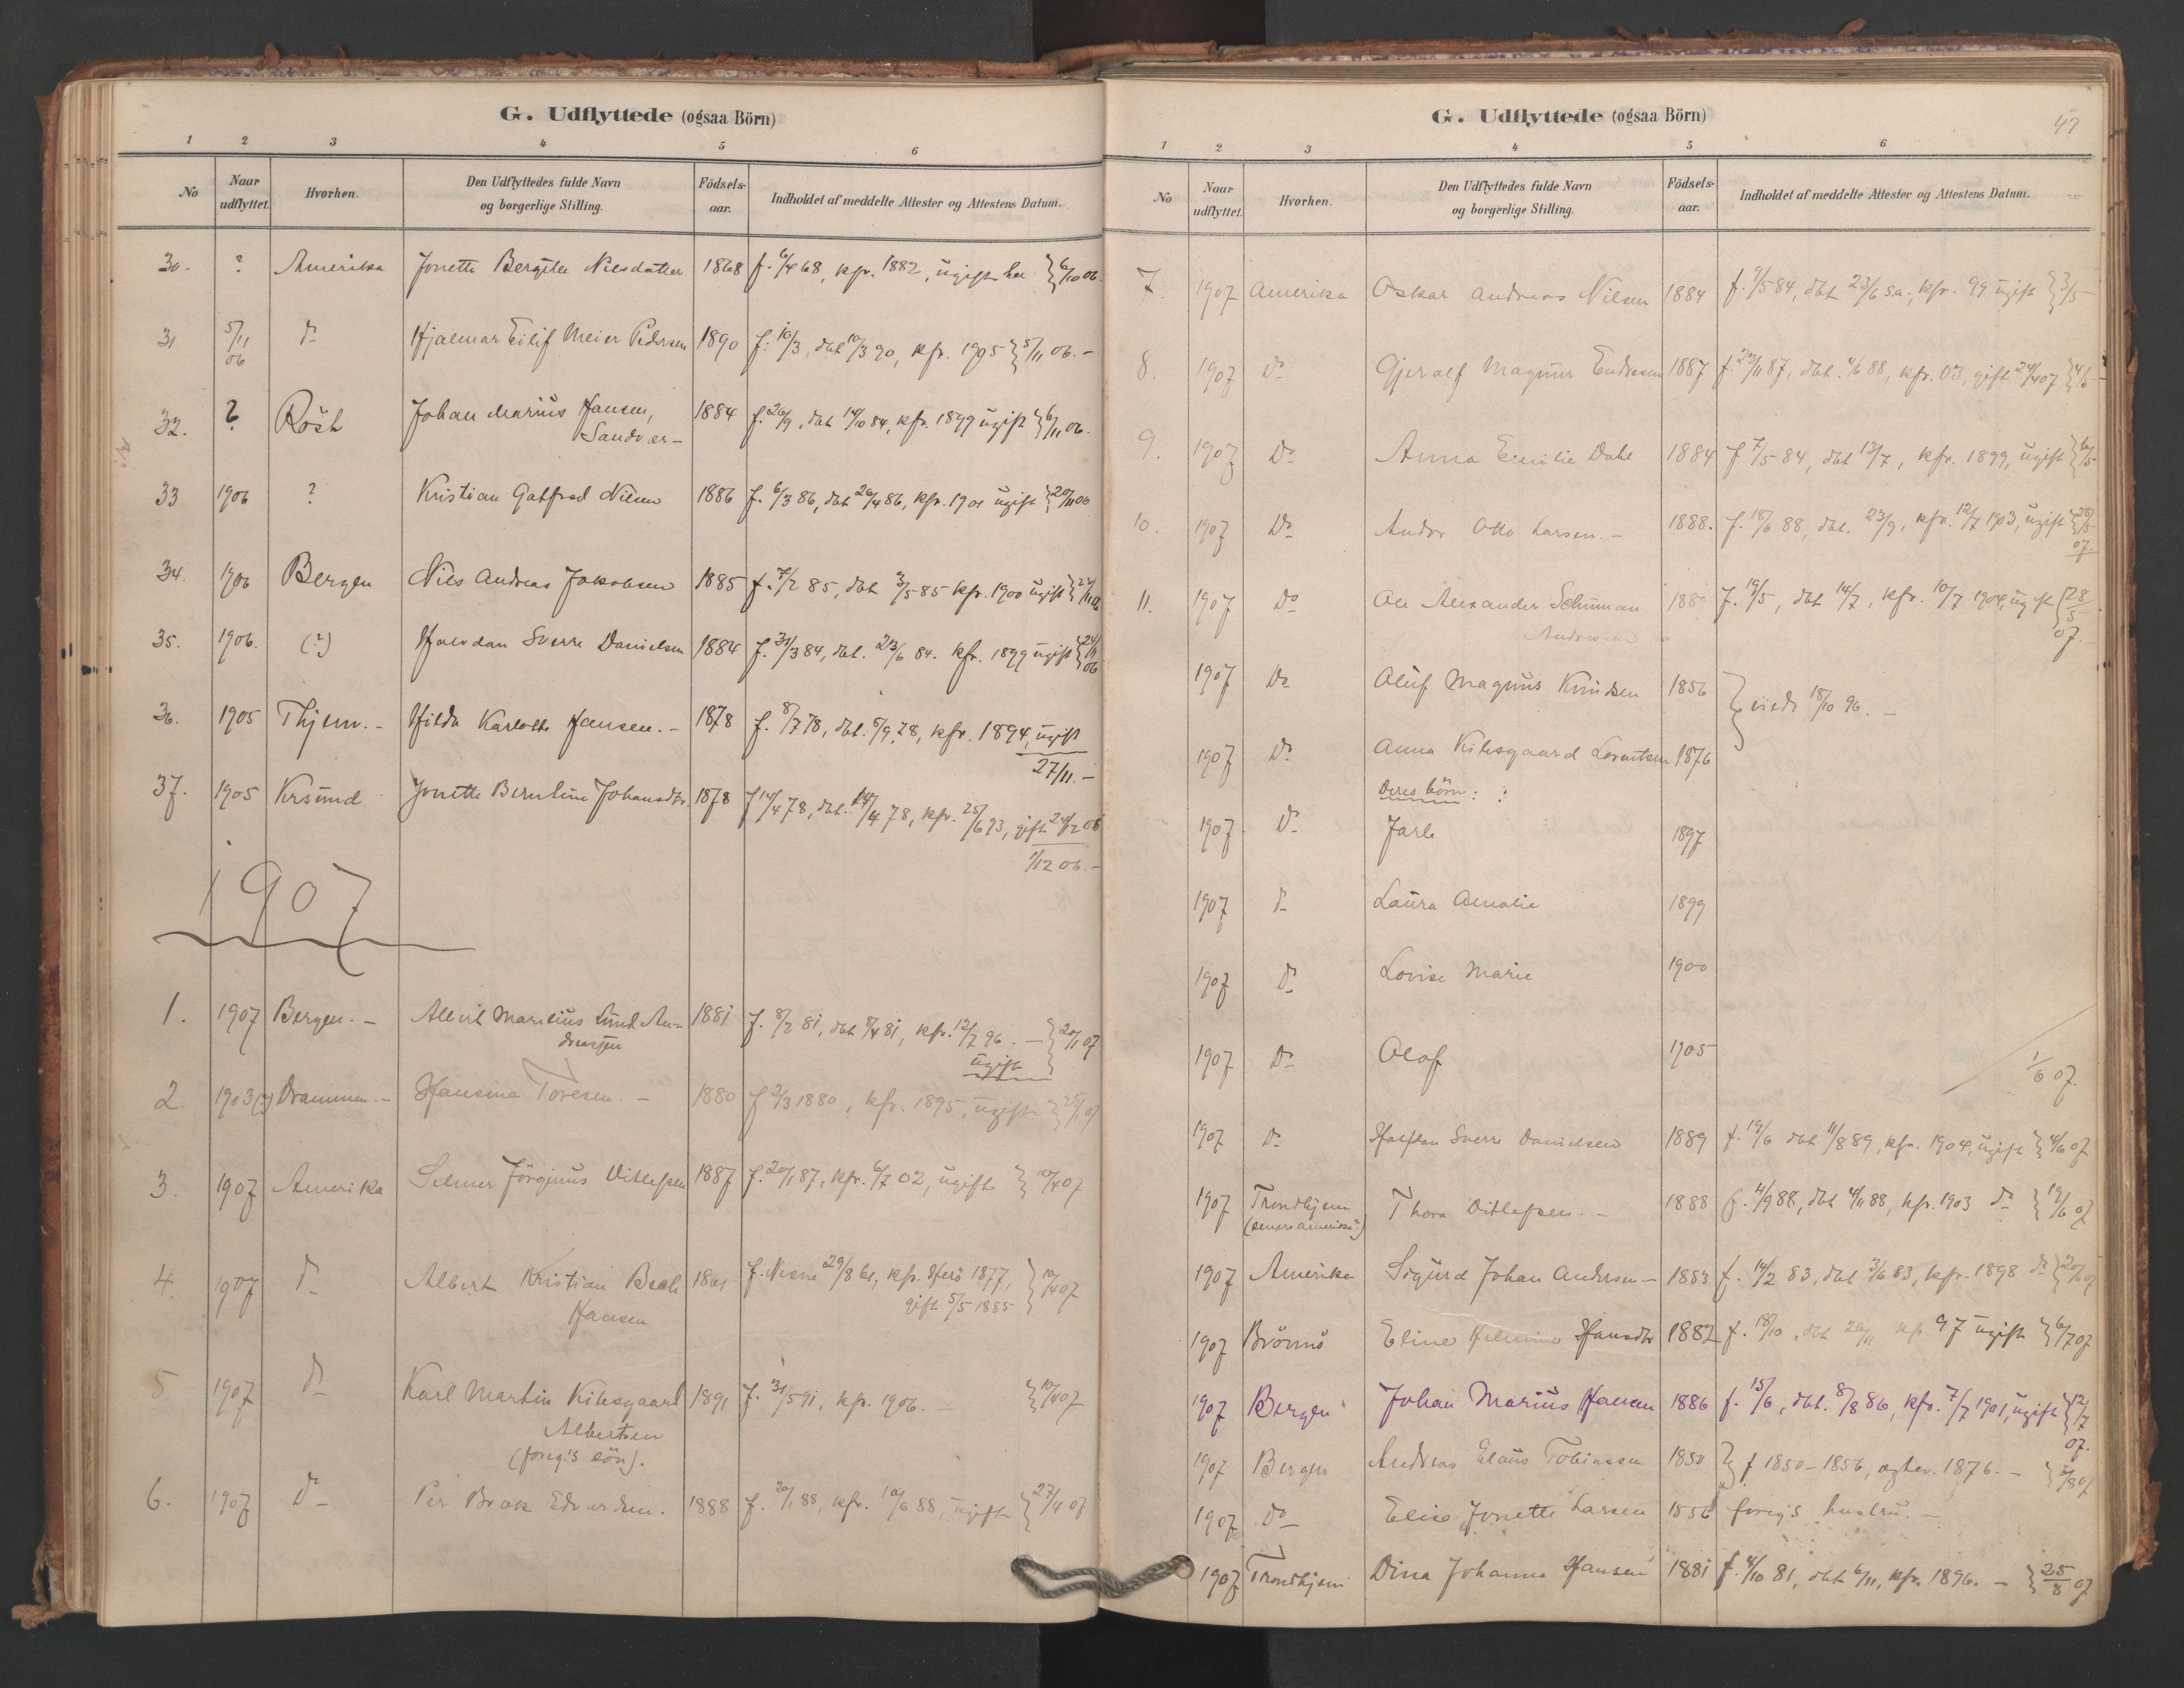 G. Udflyttede (ogsaa Börn)
1 2 3 4 5 6
No Naar udflyttet. Hvorhen. Den Udflyttedes fulde Navn og borgerlige Stilling. Födsels-aar. Indholdet af meddelte Attester og Attestens Datum.
30. ? Amerika Jonette Bergitte Nilsdatter 1868 f. 6/4 68, kfr. 1882, ugift her } 6/10 06.
31 5/11 06 do Hjalmar Eilif Meier Pedersen 1890 f. 10/3, dbt 10/3 90, kfr. 1905 } 5/11 06. -
32. ? Röst Johan Marius Hansen, 1884 f. 26/9, dbt 14/10 84, kfr. 1899 ugift } 6/11 06.
Sandvær -
33 1906 ? Kristian Gotfred Nilsen 1886 f. 6/3 86, dbt 26/4 86, kfr. 1901 ugift } 20/11 06
34. 1906 Bergen Nils Andreas Jakobsen 1885 f. 7/2 85, dbt 3/5 85 kfr. 1900 ugift }
35. 1906. (?) Halvdan Sverre Danielsen 1884 f. 31/3 84, dbt. 23/6 84. kfr. 1899 ugift } 24/11 06
36. 1905 Thjem. - Hilda Karlotte Hansen. - 1878 f. 8/7 78, dbt. 8/9 78, kfr. 1894, ugift
27/11. -
37. 1905 Krsund Jonette Berntine Johansdtr. 1878 f 14/4 78, dbt. 14/4 78, kfr. 25/6 93, gift 24/2 06
1/12 06. -
1907
1. 1907 Bergen. - Albert Marelius Lund An- 1881 f. 8/2 81, dbt 8/4 81, kfr. 12/7 96. - } 20/1 07
dreassen ugift
2. 1903(?) Drammen. - Hansina Toresen. - 1880 f 2/3 1880, kfr. 1895, ugift } 25/1 07
3. 1907 Amerika Selmer Jörginus Ditlefsen 1887 f. 20/1 87, kfr. 6/7 02, ugift } 10/4 07
4. 1907 do Albert Kristian Bech 1861 f. Nesne 29/8 61, kfr. Herö 1877, } 10/4 07
Hansen gift 5/5 1885
5 1907 do Karl Martin Kilesgaard 1891 f. 31/5 91, kfr. 1906. - } 10/4 07
Albertsen
(foreg.'s sön).
6. 1907 do Per Brok Edvardsen. 1888 f. 20/1 88, kfr. 10/6 88, ugift } 27/4 07
G. Udflyttede (ogsaa Börn)
47
1 2 3 4 5 6
No Naar udflyttet. Hvorhen. Den Udflyttedes fulde Navn og borgerlige Stilling. Födsels-aar. Indholdet af meddelte Attester og Attestens Datum.
7. 1907 Amerika Oskar Andreas Nilsen 1884 f. 9/5 84, dbt 23/6 s.a., kfr. 99 ugift } 3/5 -
8. 1907 do Gjeralf Magnus Endresen 1887 f. 23/11 87, dbt. 4/6 88, kfr. 03, gift 24/4 07 } 4/5 -
9. 1907 Do Anna Emilie Dahl 1884 f 7/5 84, dbt 13/7, kfr. 1899, ugift } 6/5
10. 1907 Do Andor Otto Larsen. - 1888. f. 18/6 88, dbt. 23/9, kfr. 12/7 1903, ugift } 28/5 07.
11. 1907 Do Ole Alexander Schuman f. 19/5, dbt 14/7, kfr. 10/7 1904, ugift } 28/5 07. -
Andresen
1907 Do Aluf Magnus Knudsen 1856 } viede 18/10 96. -
1907 Do Anna Kilesgaard Lorentsen 1876
Deres börn:
1907 Do Jarle 1897
1907 do Laura Amalie 1899
1907 Do Lovise Marie 1900
1907 Do Olaf 1905
1/6 07.
1907 Do Halfdan Sverre Danielsen 1889 f. 19/6 dbt 11/8 89, kfr. 1904, ugift } 4/6 07
1907 Trondhjem Thora Ditlefsen. - 1888 f. 4/9 88, dbt 4/11 88, kfr. 1903 do } 19/6 07
(senere Amerika?)
1907 Amerika Sigurd Johan Andersen - 1883 f. 14/2 83, dbt 3/6 83, kfr. 1898 do } 20/6 07
1907 Brönnö Eline Hansdtr 1882 f. 18/10, dbt 26/11 kfr 97 ugift } 6/7 07
1907 Bergen Johan Marius Hansen 1886 f. 15/6, dbt. 8/8 86, kfr. 7/7 1901, ugift } 12/7 07.
1907 Bergen Andreas Elaus Tobiassen 1850 } f 1850 - 1856, ægtev. 1876. - } 3/8 07
1907 Do Elise Jonette Larsen 1856 foreg's hustru. -
1907 Trondhjem Dina Johanna Hansen 1881 f. 4/10 81, dbt 6/11, kfr. 1896. - } 25/8 07